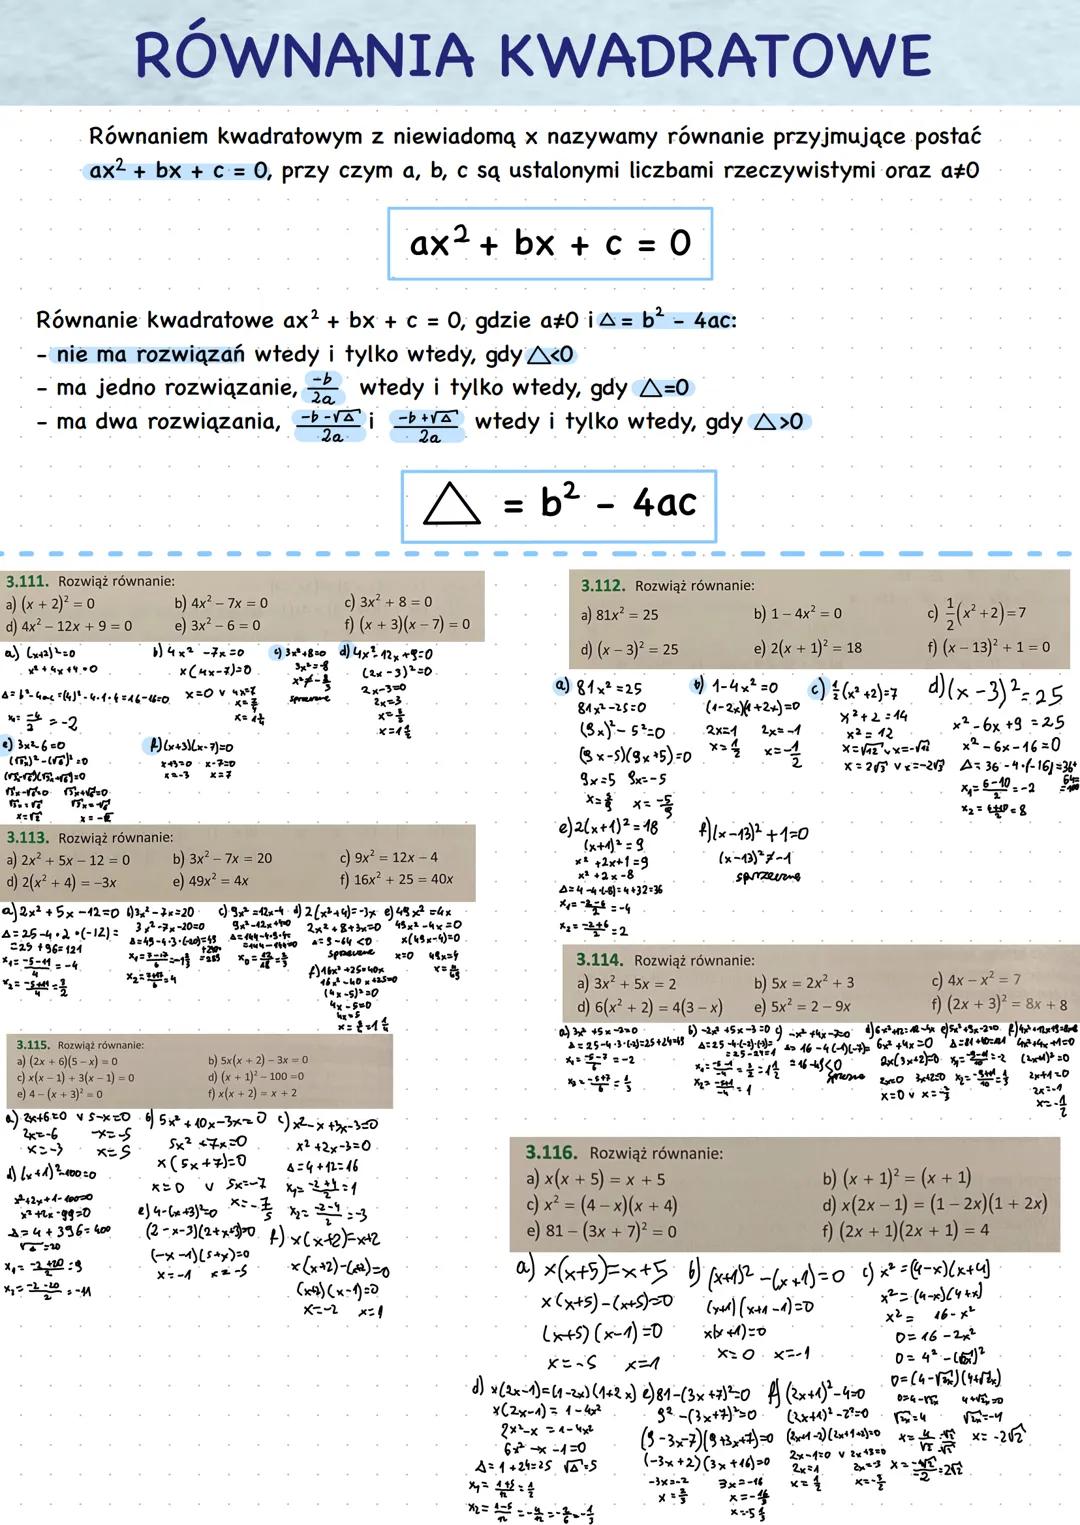 RÓWNANIA KWADRATOWE
Równaniem kwadratowym z niewiadomą x nazywamy równanie przyjmujące postać
ax² + bx + c = 0, przy czym a, b, c są ustalonymi liczbami rzeczywistymi oraz a≠0
ax² + bx + c = 0
Równanie kwadratowe ax² + bx + c = 0, gdzie a≠0 i △ = b² - 4ac:
- nie ma rozwiązań wtedy i tylko wtedy, gdy △<0
- ma jedno rozwiązanie, -b/2a wtedy i tylko wtedy, gdy △=0
- ma dwa rozwiązania, -b-√△/2a i -b+√△/2a wtedy i tylko wtedy, gdy △>0
△ = b² - 4ac
3.111. Rozwiąż równanie:
a) (x + 2)² = 0 b) 4x² – 7x = 0 c) 3x² + 8 = 0
d) 4x² – 12x + 9 = 0 e) 3x² – 6 = 0 f) (x + 3)(x – 7) = 0
a) (x+2)²=0
x²+4x+4=0
△=b²-4ac=(4)²-4·1·4=16-16=0
x₁=-4/2=-2
b) 4x²-7x=0
x(4x-7)=0
x=0 v 4x=7
c) 3x²+8=0
3x²=-8
sprzeczne
d) 4x²-12x+9=0
(2x-3)²=0
2x-3=0
2x=3
x=3/2
x=1½
e) 3x²-6=0
(√3x)²-(√6)²=0
(√3x-√6)(√3x+√6)=0
√3x-√6=0 √3x+√6=0
x=√2 x=-√2
f) (x+3)(x-7)=0
x+3=0 x-7=0
x=-3 x=7
3.112. Rozwiąż równanie:
a) 81x² = 25 b) 1 – 4x² = 0 c) ½(x² + 2) = 7
d) (x – 3)² = 25 e) 2(x + 1)² = 18 f) (x – 13)² + 1 = 0
a) 81x²=25
81x²-25=0
(9x)²-5²=0
(9x-5)(9x+5)=0
9x=5 9x=-5
x=5/9 x=-5/9
b) 1-4x²=0
(1-2x)(1+2x)=0
2x=1 2x=-1
x=½ x=-½
c) ½(x²+2)=7
x²+2=14
x²=12
x=√12 v x=-√12
x=2√3 v x=-2√3
d) (x-3)²=25
x²-6x+9=25
x²-6x-16=0
△=36-4·(-16)=36+64=100
x₁=6-10/2=-2
x₂=6+10/2=8
e) 2(x+1)²=18
(x+1)²=9
x²+2x+1=9
x²+2x-8
△=4-4·(-8)=4+32=36
x₁=-2-6/2=-4
x₂=-2+6/2=2
f) (x-13)²+1=0
(x-13)²≠-1
sprzeczne
3.113. Rozwiąż równanie:
a) 2x² + 5x – 12 = 0 b) 3x² – 7x = 20 c) 9x² = 12x – 4
d) 2(x² + 4) = –3x e) 49x² = 4x f) 16x² + 25 = 40x
a) 2x²+5x-12=0
△=25-4·2·(-12)=
=25+96=121
x₁=-5-11/4=-4
x₂=-5+11/4=3/2
b) 3x²-7x=20
3x²-7x-20=0
c) 9x²=12x-4
9x²-12x+4=0
d) 2(x²+4)=-3x
2x²+8+3x=0
△=9-64<0
sprzeczne
e) 49x²=4x
49x²-4x=0
x(49x-4)=0
x=0 49x=4
x=4/49
f) 16x²+25=40x
16x²-40x+25=0
(4x-5)²=0
4x-5=0
4x=5
x=5/4=1¼
3.114. Rozwiąż równanie:
a) 3x² + 5x = 2 b) 5x = 2x² + 3 c) 4x – x² = 7
d) 6(x² + 2) = 4(3 – x) e) 5x² = 2 – 9x f) (2x + 3)² = 8x + 8
a) 3x²+5x-2=0
△=25-4·3·(-2)=25+24=49
x₁=-5-7/6=-2
x₂=-5+7/6=1/3
b) -2x²+5x-3=0
c) -x²+4x-7=0
d) 6x²+12=12-4x
6x²+4x=0
2x(3x+2)=0
2x=0 3x+2=0
x=0 v x=-2/3
e) 5x²+9x-2=0
△=81+40=121
f) 4x²+12x+9=8x+8
4x²+4x+1=0
(2x+1)²=0
2x+1=0
2x=-1
x=-½
3.115. Rozwiąż równanie:
a) (2x + 6)(5 – x) = 0 b) 5x(x + 2) – 3x = 0
c) x(x – 1) + 3(x – 1) = 0 d) (x + 1)² – 100 =0
e) 4 – (x + 3)² = 0 f) x(x + 2) = x + 2
a) 2x+6=0 v 5-x=0
2x=-6 -x=-5
x=-3 x=5
b) 5x²+10x-3x=0
5x²+7x=0
x(5x+7)=0
x=0 v 5x=-7
x=-7/5
c) x²-x+3x-3=0
x²+2x-3=0
△=4+12=16
x₁=-2+4/2=1
x₂=-2-4/2=-3
d) (x+1)²-100=0
x²+2x+1-100=0
x²+2x-99=0
△=4+396=400
√△=20
x₁=-2+20/2=9
x₂=-2-20/2=-11
e) 4-(x+3)²=0
(2-x-3)(2+x+3)=0
(-x-1)(5+x)=0
x=-1 x=-5
f) x(x+2)=x+2
x(x+2)-(x+2)=0
(x+2)(x-1)=0
x=-2 x=1
3.116. Rozwiąż równanie:
a) x(x + 5) = x + 5 b) (x + 1)² = (x + 1)
c) x² = (4 – x)(x + 4) d) x(2x – 1) = (1 – 2x)(1 + 2x)
e) 81 – (3x + 7)² = 0 f) (2x + 1)(2x + 1) = 4
a) x(x+5)=x+5
x(x+5)-(x+5)=0
(x+5)(x-1)=0
x=-5 x=1
b) (x+1)²-(x+1)=0
(x+1)(x+1-1)=0
x(x+1)=0
x=0 x=-1
c) x²=(4-x)(x+4)
x²=(4-x)(4+x)
x²=16-x²
0=16-2x²
0=4²-(√2x)²
0=(4-√2x)(4+√2x)
0=4-√2x 4+√2x=0
√2x=4 √2x=-4
x=-2√2
d) x(2x-1)=(1-2x)(1+2x)
x(2x-1)=1-4x²
2x²-x=1-4x²
6x²-x-1=0
△=1+24=25 √△=5
x₁=1+5/12=½
x₂=1-5/12=-4/12=-2/6=-1/3
e) 81-(3x+7)²=0
9²-(3x+7)²=0
(9-3x-7)(9+3x+7)=0
(-3x+2)(3x+16)=0
-3x=-2 3x=-16
x=2/3 x=-16/3
x=-5⅓
f) (2x+1)²-4=0
(2x+1)²-2²=0
(2x+1-2)(2x+1+2)=0
2x-1=0 v 2x+3=0
2x=1 2x=-3
x=½ x=-3/2